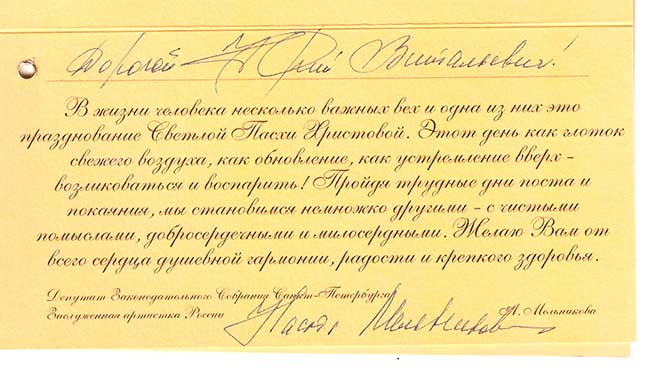 Дорогой Юрий Витальевич!
В жизни человека несколько важных вех и одна из них это
празднование Светлой Пасхи Христовой. Этот день как глоток
свежего воздуха, как обновление, как устремление вверх –
возликоваться и воспарить! Пройдя трудные дни поста и
покаяния, мы становимся немножко другими – с чистыми
помыслами, добросердечными и милосердными. Желаю Вам от
всего сердца душевной гармонии, радости и крепкого здоровья.
Депутат Законодательного Собрания Санкт-Петербурга
Заслуженная артистка России
А. Мельникова
Настя Мельникова